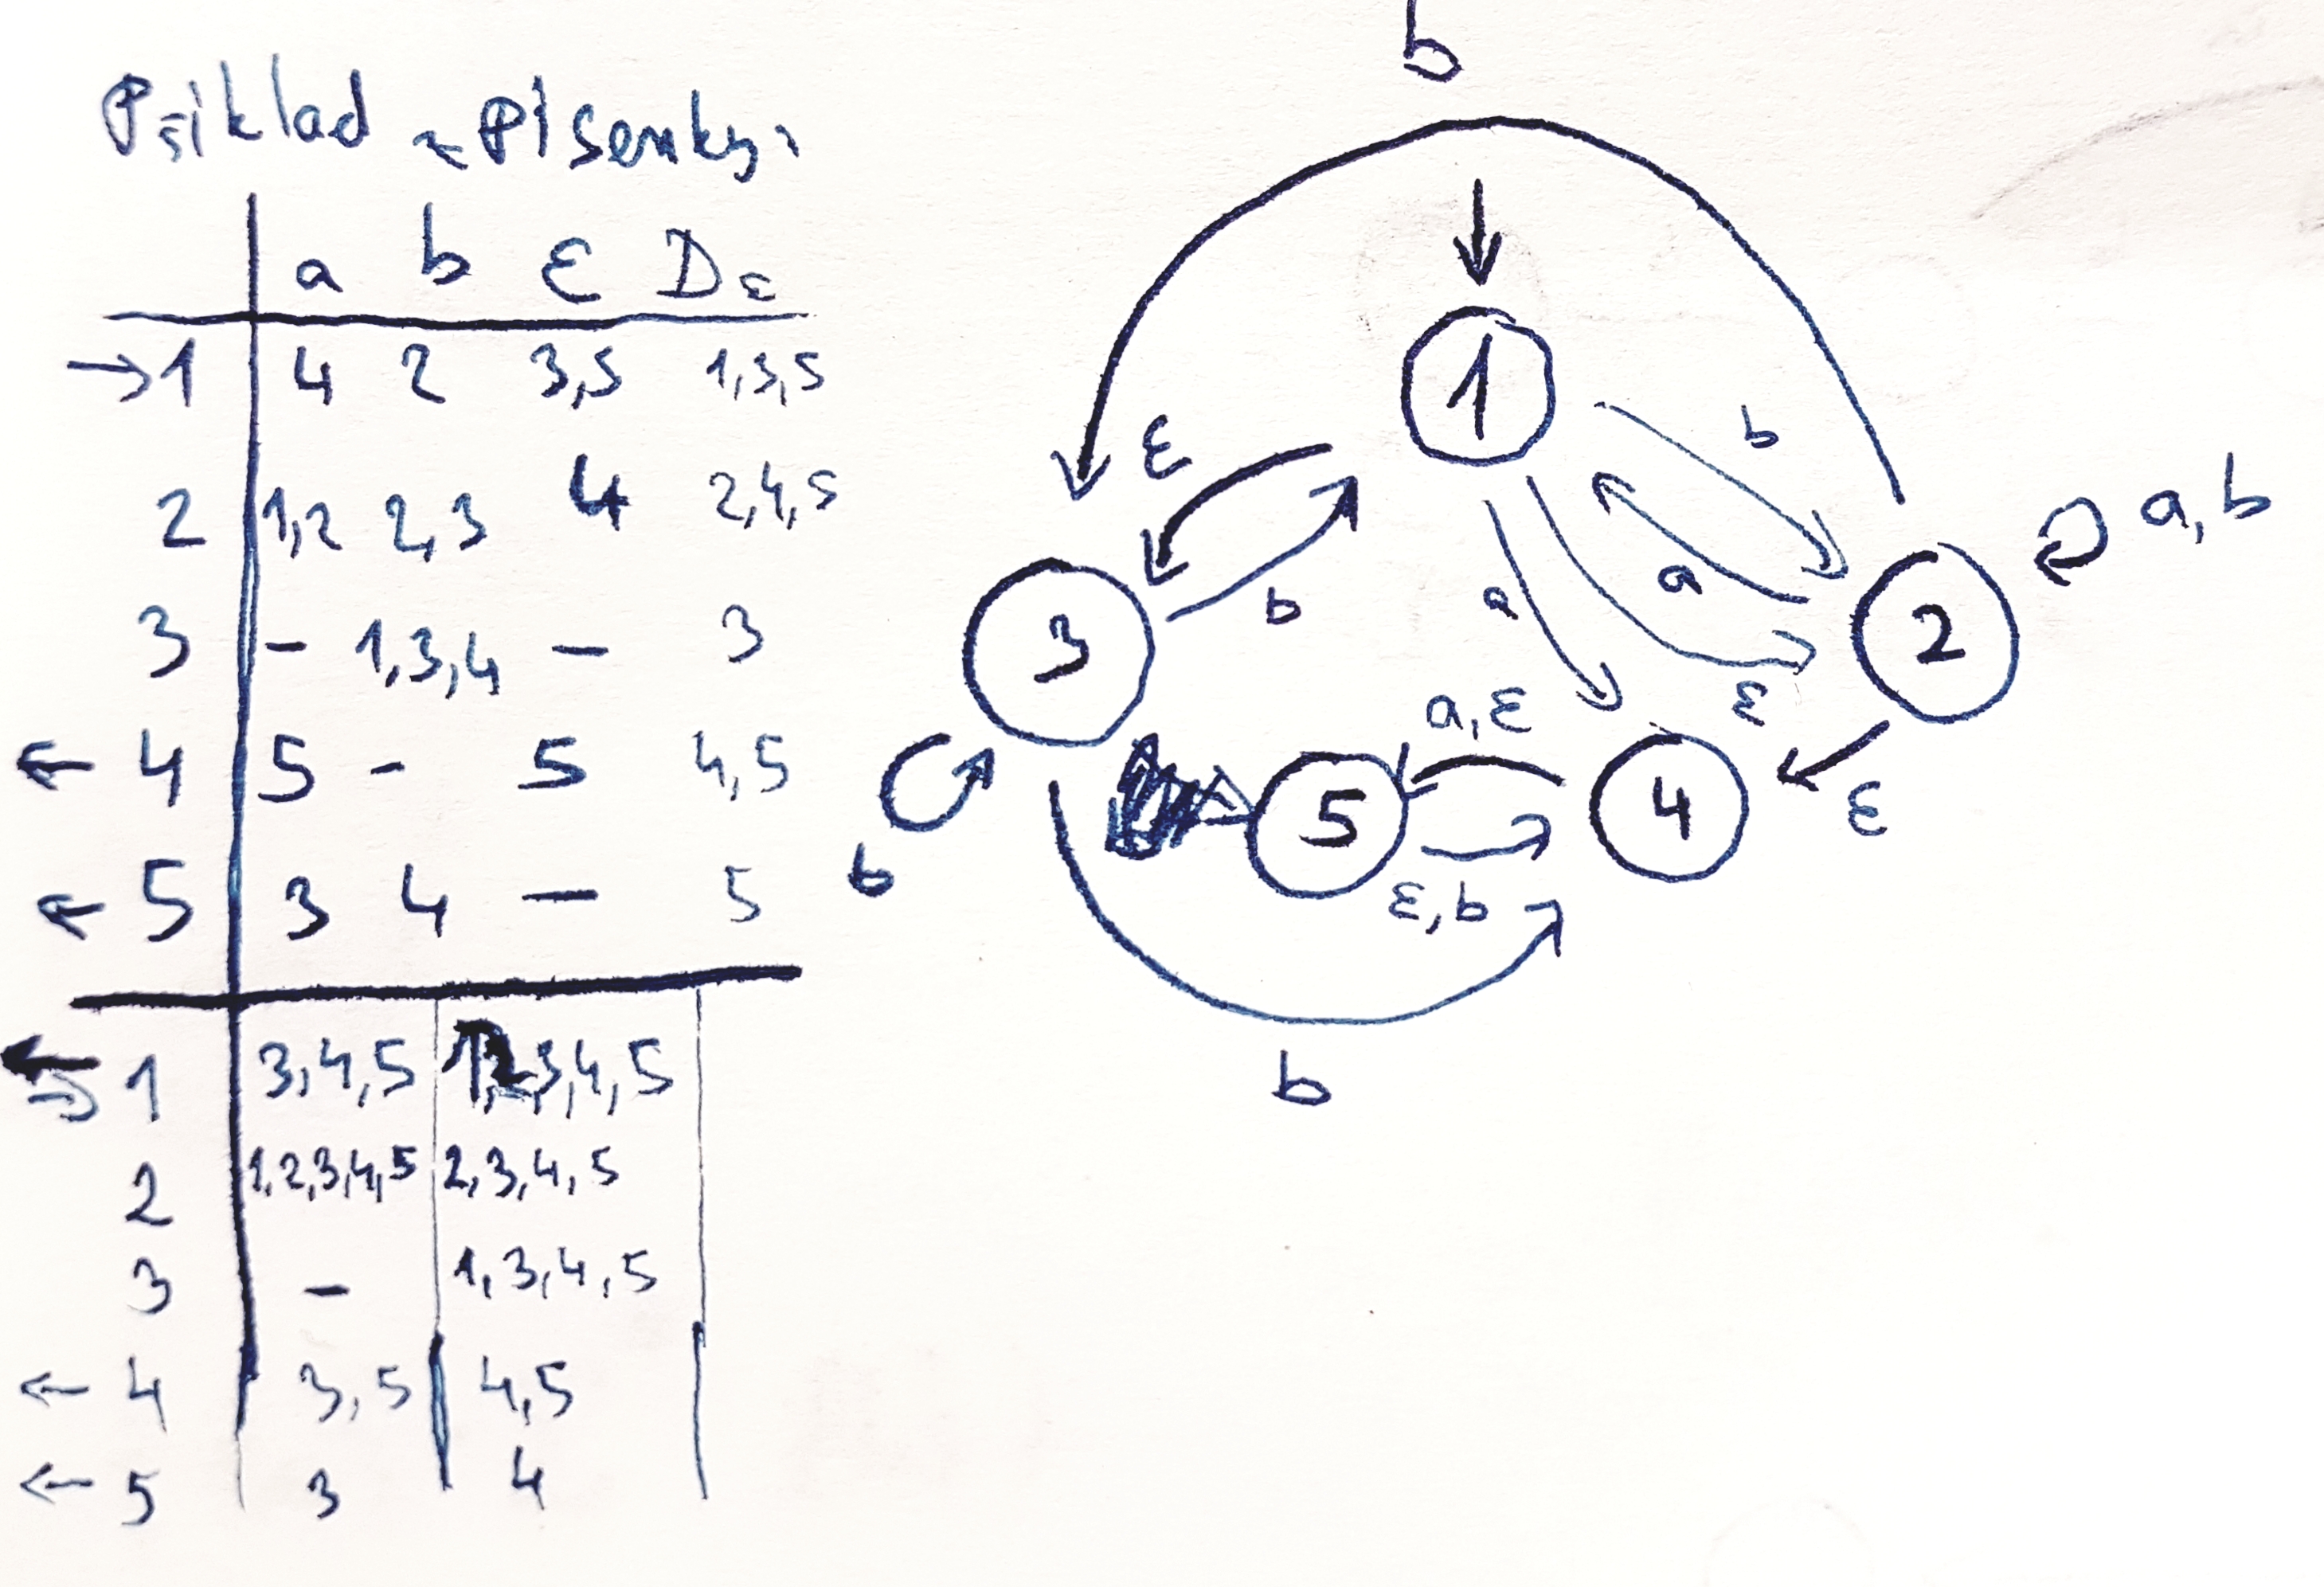 Příklad z písemky:
a b ε Dε
→1 4 2 3,5 1,3,5
2 1,2 2,3 4 2,4,5
3 - 1,3,4 - 3
← 4 5 - 5 4,5
← 5 3 4 - 5
1 3,4,5 3,4,5
2 1,2,3,4,5 2,3,4,5
3 - 1,3,4,5
← 4 3,5 4,5
← 5 3 4
b
1
ε
b
b
a
a
ε
a,b
2
3
b
a,ε
5
ε,b
4
ε
b